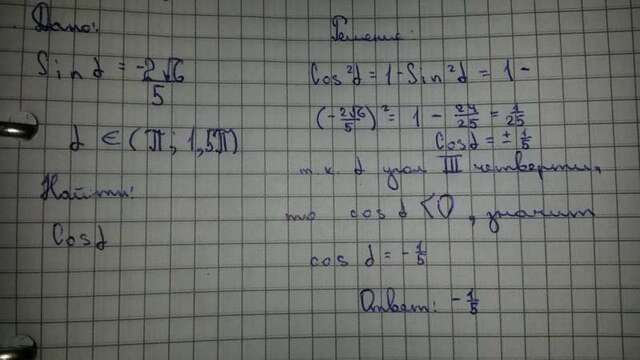 Дано:
Sin α = -2√6/5
α ∈ (π; 1,5π)
Найти:
Cos α
Решение:
Cos²α = 1 - Sin²α = 1 -
(-2√6/5)² = 1 - 24/25 = 1/25
Cos α = ± 1/5
т.к. α угол III четверти,
то cos α < 0, значит
cos α = - 1/5
Ответ: - 1/5